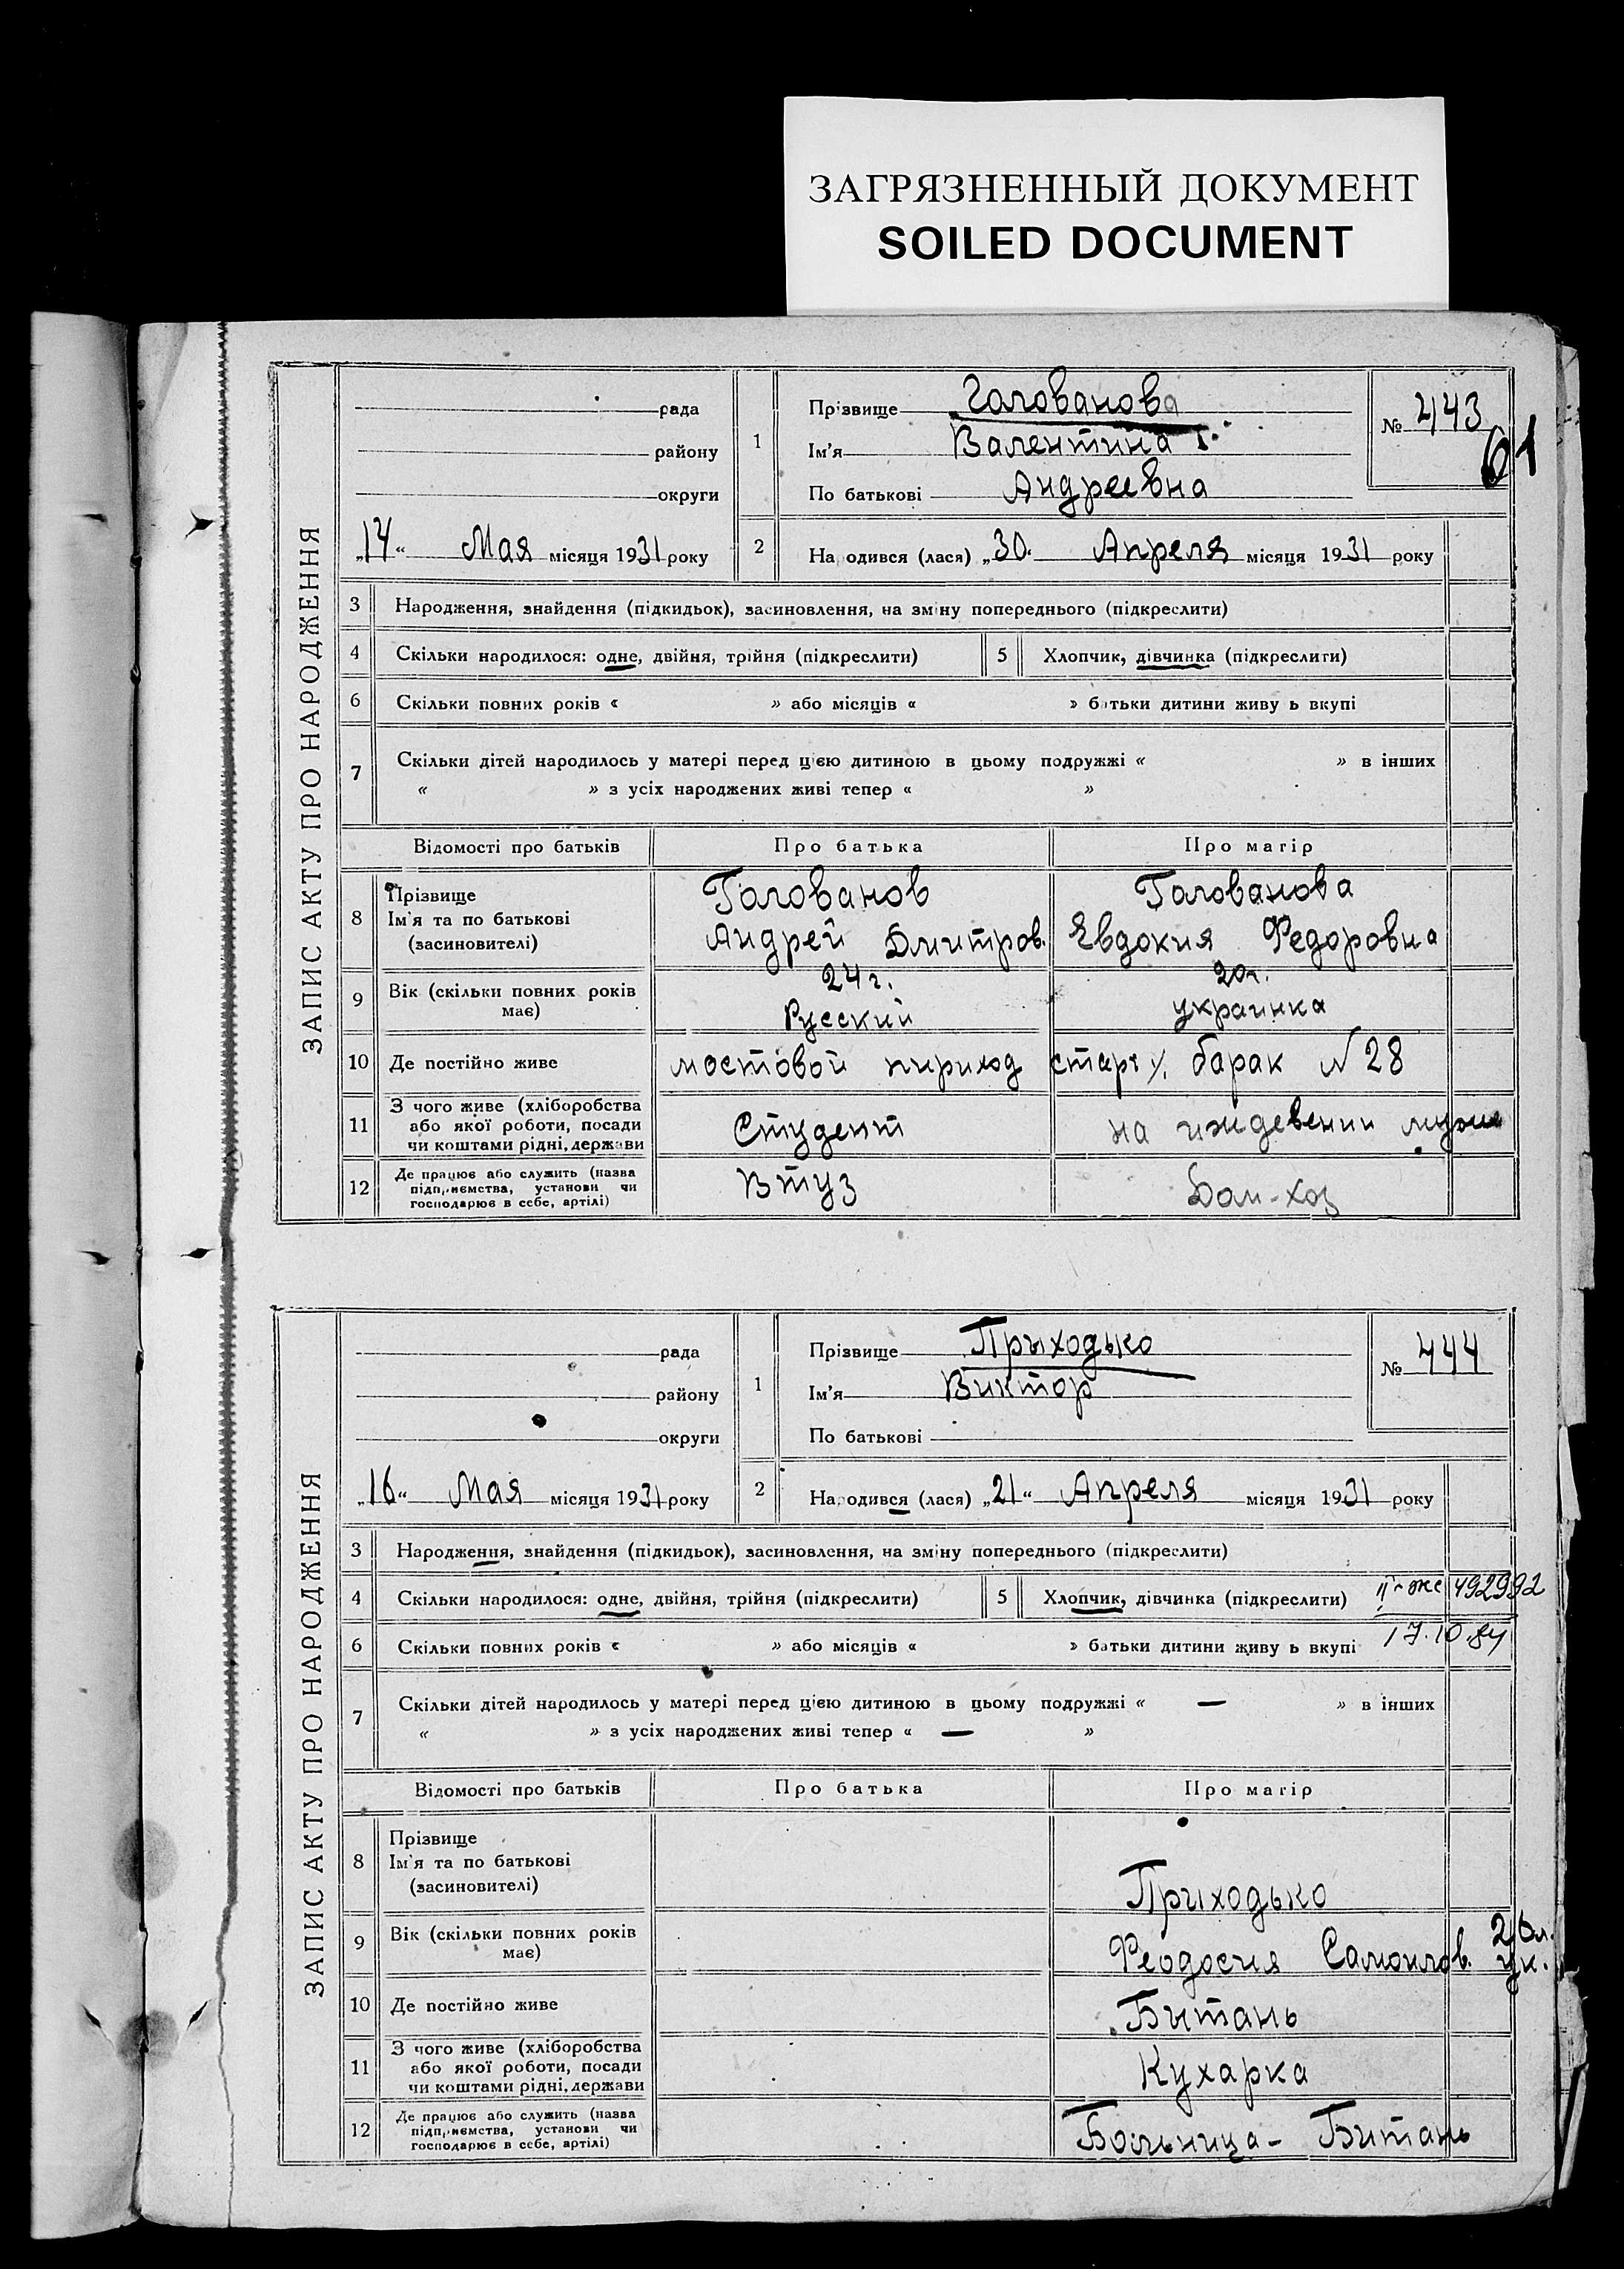 ЗАГРЯЗНЕННЫЙ ДОКУМЕНТ
SOILED DOCUMENT
ЗАПИС АКТУ ПРО НАРОДЖЕННЯ
рада
району
округи
„14“ Мая місяця 1931 року
1
Прізвище Голованова
Ім'я Валентина
По батькові Андреевна
№ 443
61
2 На одився (лася) „30“ Апреля місяця 1931 року
3 Народження, знайдення (підкидьок), засиновлення, на зміну попереднього (підкреслити)
4 Скільки народилося: одне, двійня, трійня (підкреслити) 5 Хлопчик, дівчинка (підкреслити)
6 Скільки повних років « » або місяців « » батьки дитини живу ь вкупі
7 Скільки дітей народилось у матері перед цією дитиною в цьому подружжі « » в інших
« » з усіх народжених живі тепер « »
Відомості про батьків Про батька Про матір
8 Прізвище
Ім'я та по батькові
(засиновителі)
Голованов
Андрей Дмитров.
Голованова
Евдокия Федоровна
9 Вік (скільки повних років має)
24 г.
Русский
20г.
украинка
10 Де постійно живе мостовой барак № 28
11 З чого живе (хліборобства
або якої роботи, посади
чи коштами рідні, держави
Студент
на иждевении мужа
12 Де працює або служить (назва
підприємства, установи чи
господарює в себе, артілі)
Втуз
Дом-хоз
ЗАПИС АКТУ ПРО НАРОДЖЕННЯ
рада
району
округи
„16“ Мая місяця 1931 року
1
Прізвище Прыходько
Ім'я Виктор
По батькові
№ 444
2 Народився (лася) „21“ Апреля місяця 1931 року
3 Народження, знайдення (підкидьок), засиновлення, на зміну попереднього (підкреслити)
4 Скільки народилося: одне, двійня, трійня (підкреслити) 5 Хлопчик, дівчинка (підкреслити) 492992
6 Скільки повних років « » або місяців « » батьки дитини живу ь вкупі 17.10.84
7 Скільки дітей народилось у матері перед цією дитиною в цьому подружжі « — » в інших
« » з усіх народжених живі тепер « — »
Відомості про батьків Про батька Про матір
8 Прізвище
Ім'я та по батькові
(засиновителі)
Прыходько
9 Вік (скільки повних років має)
Феодосия Самойлов. 26л. ук.
10 Де постійно живе Бытань
11 З чого живе (хліборобства
або якої роботи, посади
чи коштами рідні, держави
Кухарка
12 Де працює або служить (назва
підприємства, установи чи
господарює в себе, артілі)
Больница - Бытань